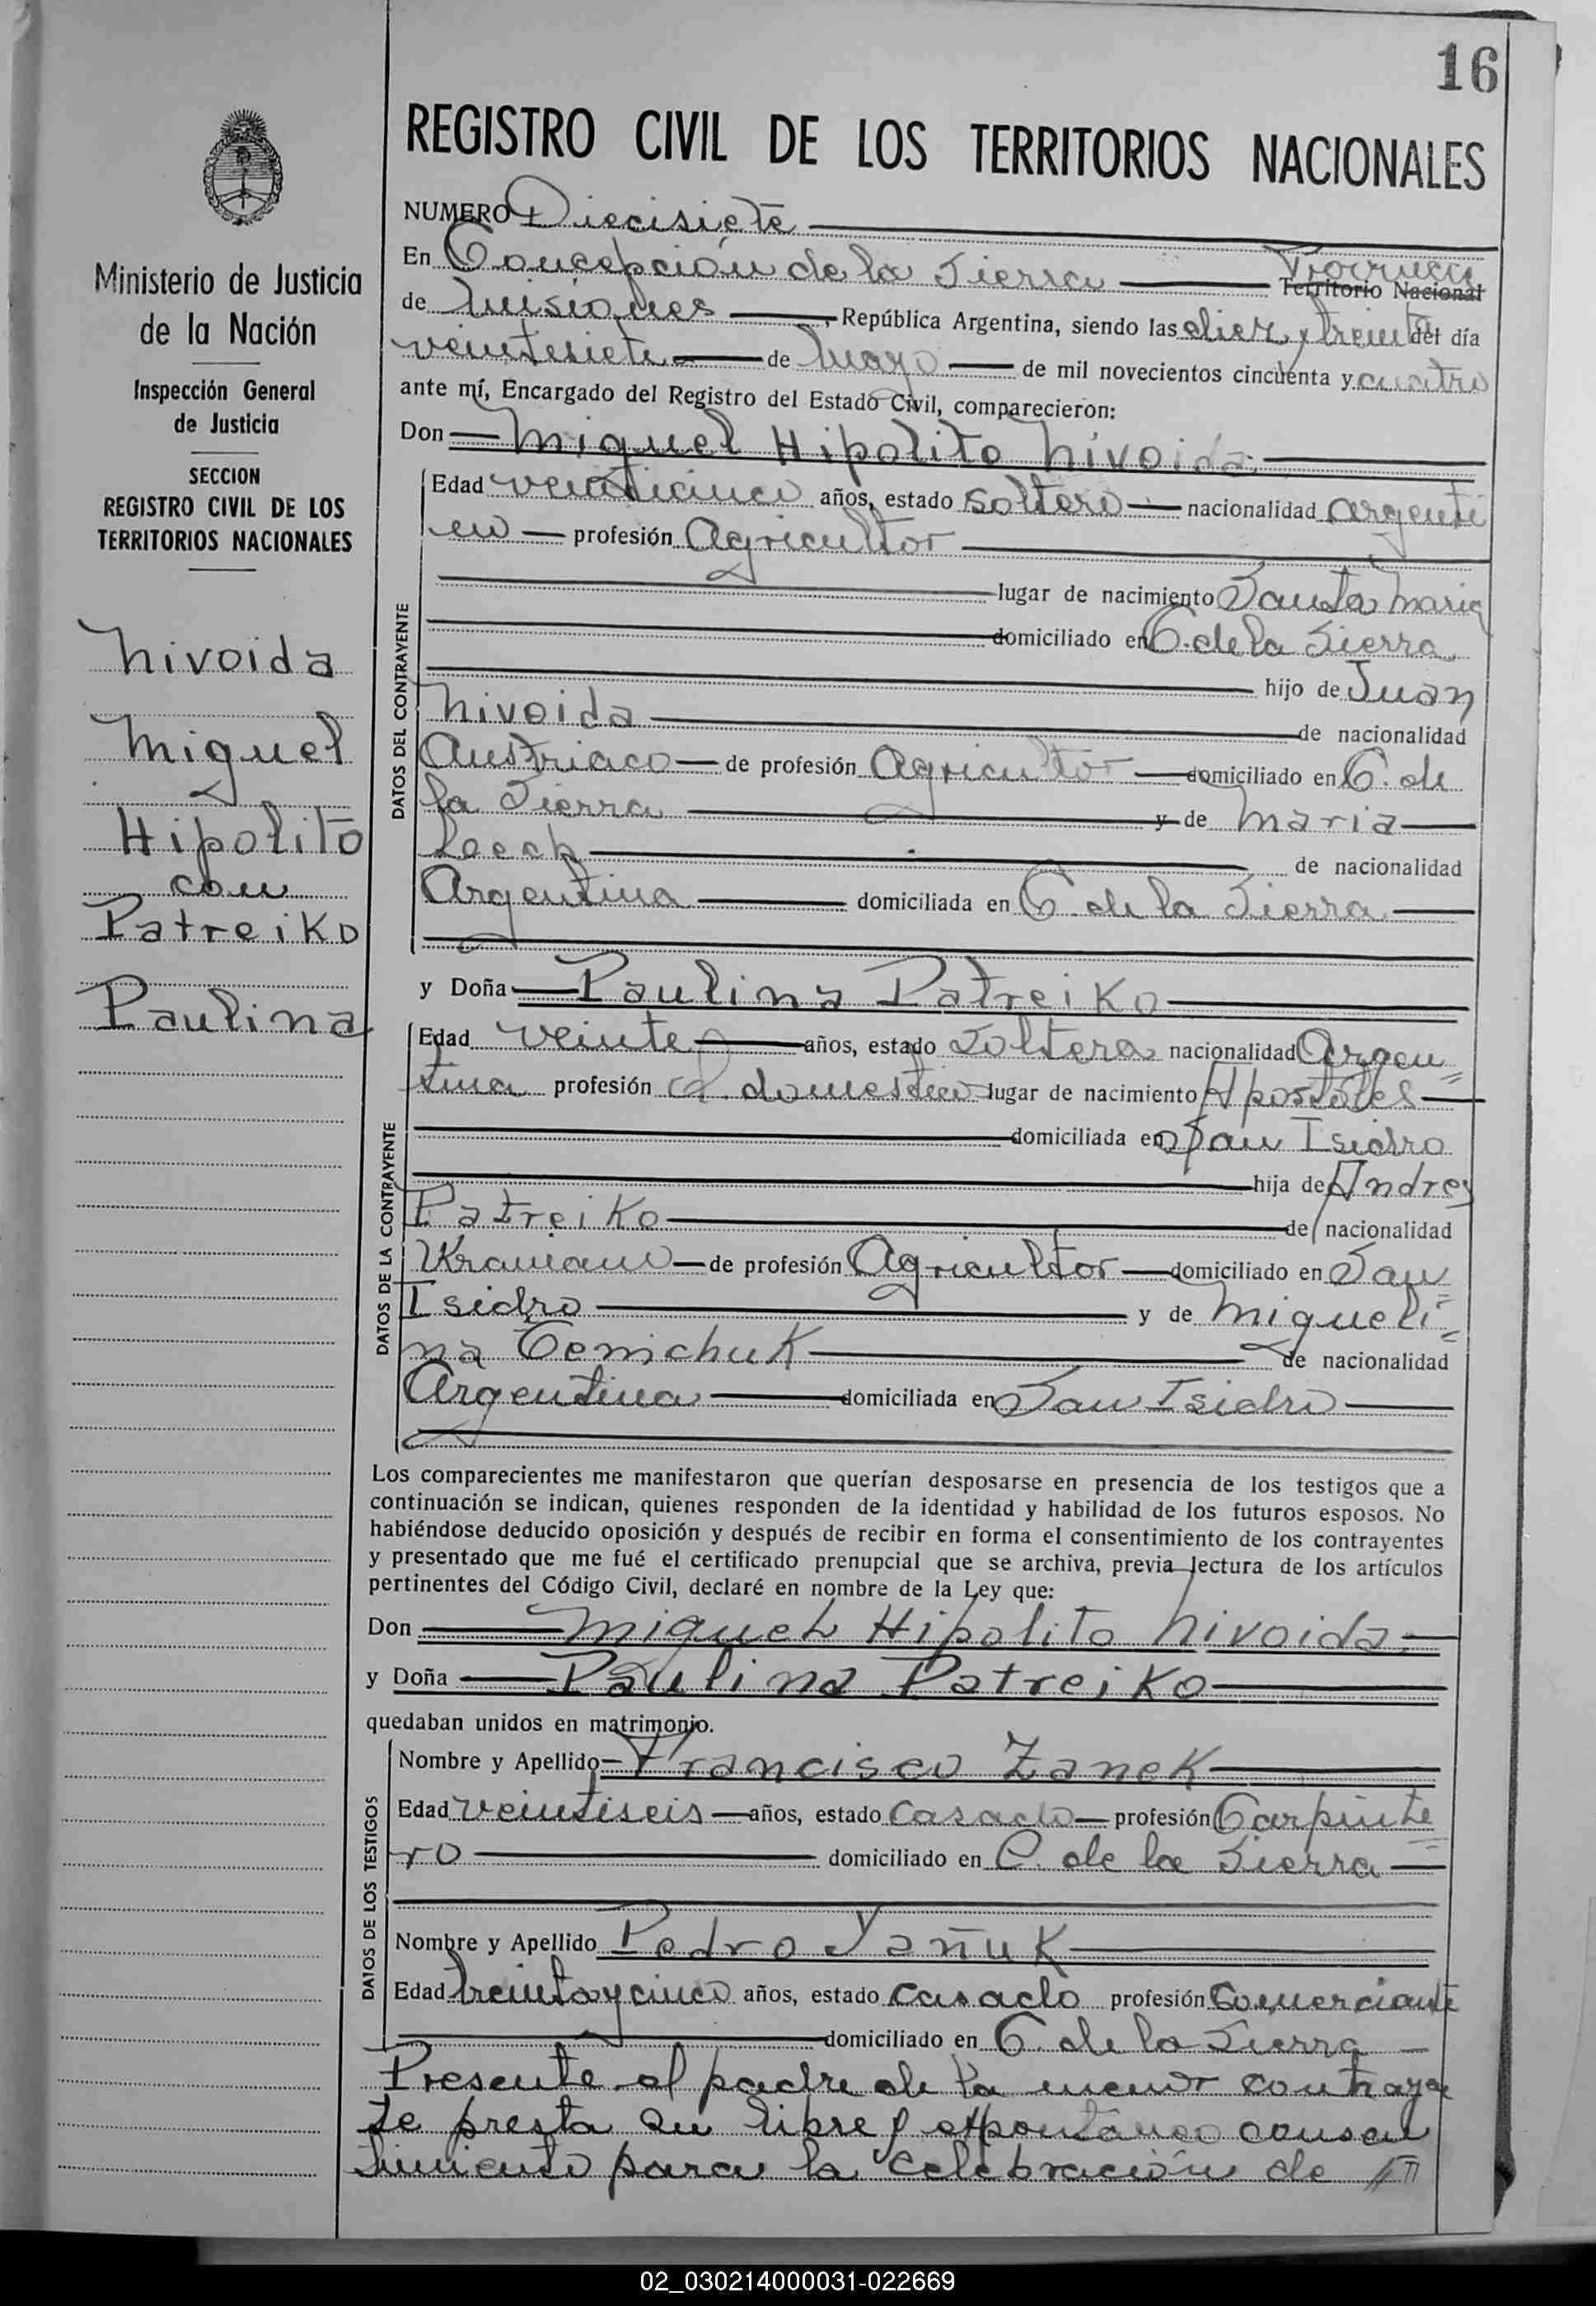 16
REGISTRO CIVIL DE LOS TERRITORIOS NACIONALES
Ministerio de Justicia
de la Nación
Inspección General
de Justicia
SECCION
REGISTRO CIVIL DE LOS
TERRITORIOS NACIONALES
Nivoida
Miguel
Hipolito
con
Patreiko
Paulina
NUMERO Diecisiete
En Concepción de la Sierra Provincia Territorio Nacional
de Misiones, República Argentina, siendo las diez y treinta del día
veintesiete de Mayo de mil novecientos cincuenta y cuatro
ante mí, Encargado del Registro del Estado Civil, comparecieron:
Don Miguel Hipolito Nivoida
DATOS DEL CONTRAYENTE
Edad veinticinco años, estado soltero nacionalidad argenti
no profesión Agricultor
lugar de nacimiento Santa Maria
domiciliado en C. de la Sierra
hijo de Juan
Nivoida de nacionalidad
Austriaco de profesión Agricultor domiciliado en C. de
la Sierra y de Maria
de nacionalidad
Argentina domiciliada en C. de la Sierra
y Doña Paulina Patreiko
DATOS DE LA CONTRAYENTE
Edad veinte años, estado Soltera nacionalidad Argen
tina profesión Q. domestico lugar de nacimiento Apostoles
domiciliada en San Isidro
hija de Andres
Patreiko de nacionalidad
Ukraniano de profesión Agricultor domiciliado en San
Isidro y de Migueli=
na de nacionalidad
Argentina domiciliada en San Isidro
Los comparecientes me manifestaron que querían desposarse en presencia de los testigos que a
continuación se indican, quienes responden de la identidad y habilidad de los futuros esposos. No
habiéndose deducido oposición y después de recibir en forma el consentimiento de los contrayentes
y presentado que me fué el certificado prenupcial que se archiva, previa lectura de los artículos
pertinentes del Código Civil, declaré en nombre de la Ley que:
Don Miguel Hipolito Nivoida
y Doña Paulina Patreiko
quedaban unidos en matrimonio.
DATOS DE LOS TESTIGOS
Nombre y Apellido Francisco Zanek
Edad veintiseis años, estado casado profesión Carpinte
ro domiciliado en C. de la Sierra
Nombre y Apellido Pedro Yañuk
Edad treinta y cinco años, estado casado profesión Comerciante
domiciliado en C. de la Sierra
Presente el padre de la menor contrayen
te presta su libre y expontáneo consen
timiento para la celebración de
02_030214000031-022669